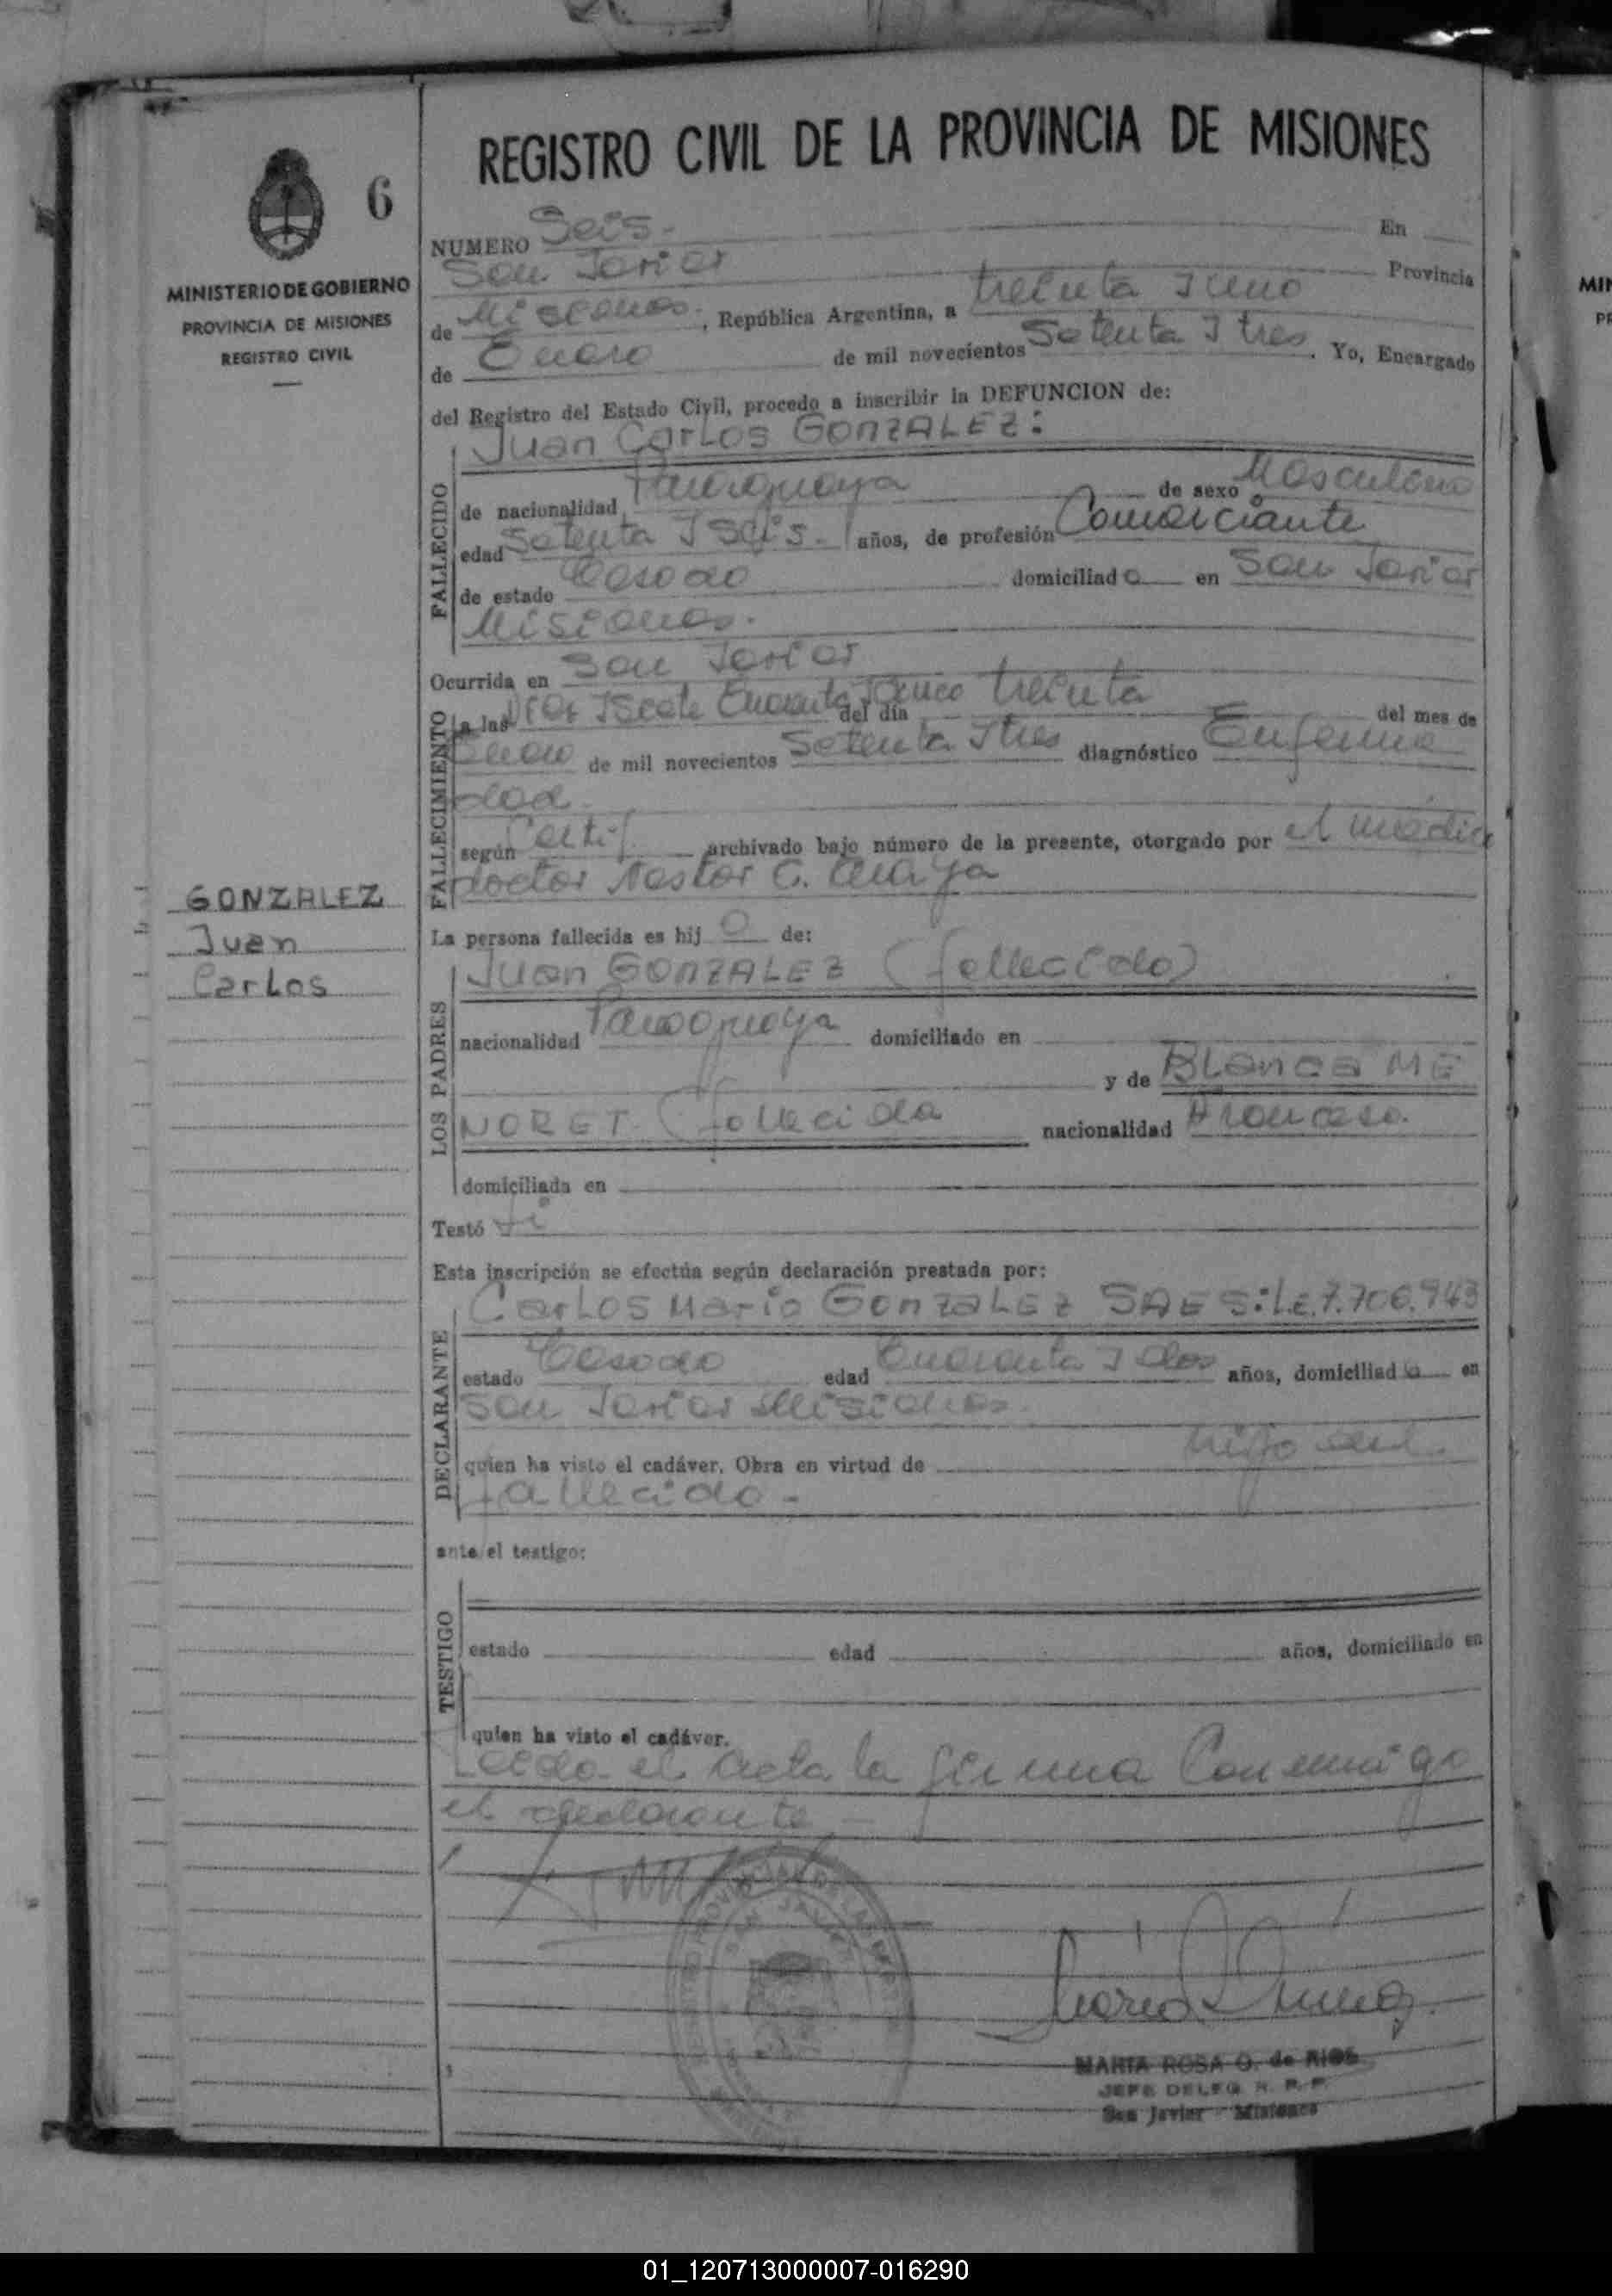 REGISTRO CIVIL DE LA PROVINCIA DE MISIONES
6
MINISTERIO DE GOBIERNO
PROVINCIA DE MISIONES
REGISTRO CIVIL
NUMERO Seis.- En
San Javier Provincia
de Misiones.-, República Argentina, a treinta I uno
de Enero de mil novecientos Setenta I tres. Yo, Encargado
del Registro del Estado Civil, procedo a inscribir la DEFUNCION de:
Juan Carlos GONZALEZ:
FALLECIDO
de nacionalidad Paraguaya de sexo Masculino
edad Setenta I Seis.- años, de profesión Comerciante
de estado Casado domiciliado en San Javier
Misiones.
Ocurrida en San Javier
FALLECIMIENTO
a las Diez I Siete Cuarenta I Cinco del día treinta del mes de
Enero de mil novecientos Setenta I tres diagnóstico Enferme
dad.
según Certif. archivado bajo número de la presente, otorgado por el medico
doctor Nestor C. Anaya
GONZALEZ
Juan
Carlos
La persona fallecida es hijo de:
LOS PADRES
Juan GONZALEZ (fallecido)
nacionalidad Paraguaya domiciliado en
y de BLANCA ME
NORET (fallecida nacionalidad Francesa.
domiciliada en
Testó
Esta inscripción se efectúa según declaración prestada por:
DECLARANTE
Carlos Mario GONZALEZ SAES: L.E. 7.706.943
estado Casado edad Cuarenta I dos años, domiciliado en
San Javier Misiones.
quien ha visto el cadáver. Obra en virtud de hijo del.
fallecido.-
ante el testigo:
TESTIGO
estado edad años, domiciliado en
quien ha visto el cadáver.
Leida el Acta la firma Conmigo
el declarante -
MARIA ROSA O. de RIOS
JEFE DELEG R. P. P.
San Javier - Misiones
MIN
01_120713000007-016290